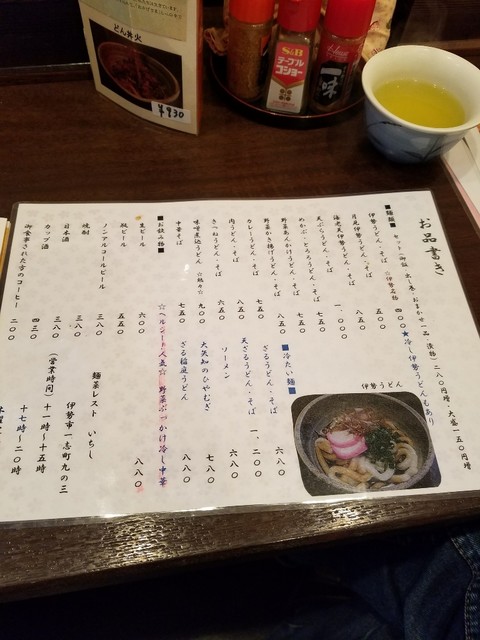 どん丼火
￥930
S&B
テーブル
コショー
一味
お品書き
セット(小御飯・出し巻・おまかせ一品・漬物)二八〇円増・大盛一五〇円増
■麺類■ ☆伊勢名物 ★冷し伊勢うどんもあり
伊勢うどん・そば 五〇〇
月見伊勢うどん・そば
海老天伊勢うどん・そば 一、〇〇〇
天ぷらうどん・そば 七五〇
めかぶ・とろろうどん・そば 七五〇
野菜あんかけうどん・そば 八五〇
野菜かき揚げうどん・そば 七五〇
カレーうどん・そば 八五〇
肉うどん・そば 六五〇
きつねうどん・そば
味噌煮込うどん 九〇〇
中華そば 七五〇
伊勢うどん
■冷たい麺■
ざるうどん・そば 六八〇
天ざるうどん・そば 一、二〇〇
ソーメン 六八〇
大矢知のひやむぎ 七八〇
ざる稲庭うどん 八八〇
☆ヘルシーで人気☆ 野菜ぶっかけ冷し中華 八八〇
■お飲み物■
生ビール 六〇〇
瓶ビール 五五〇
ノンアルコールビール 三八〇
焼酎 三八〇
日本酒 三八〇
カップ酒 四三〇
御食事された方のコーヒー 二〇〇
麺菜レスト いちし
伊勢市一志町九の三
(営業時間) 十一時〜十五時
十七時〜二〇時